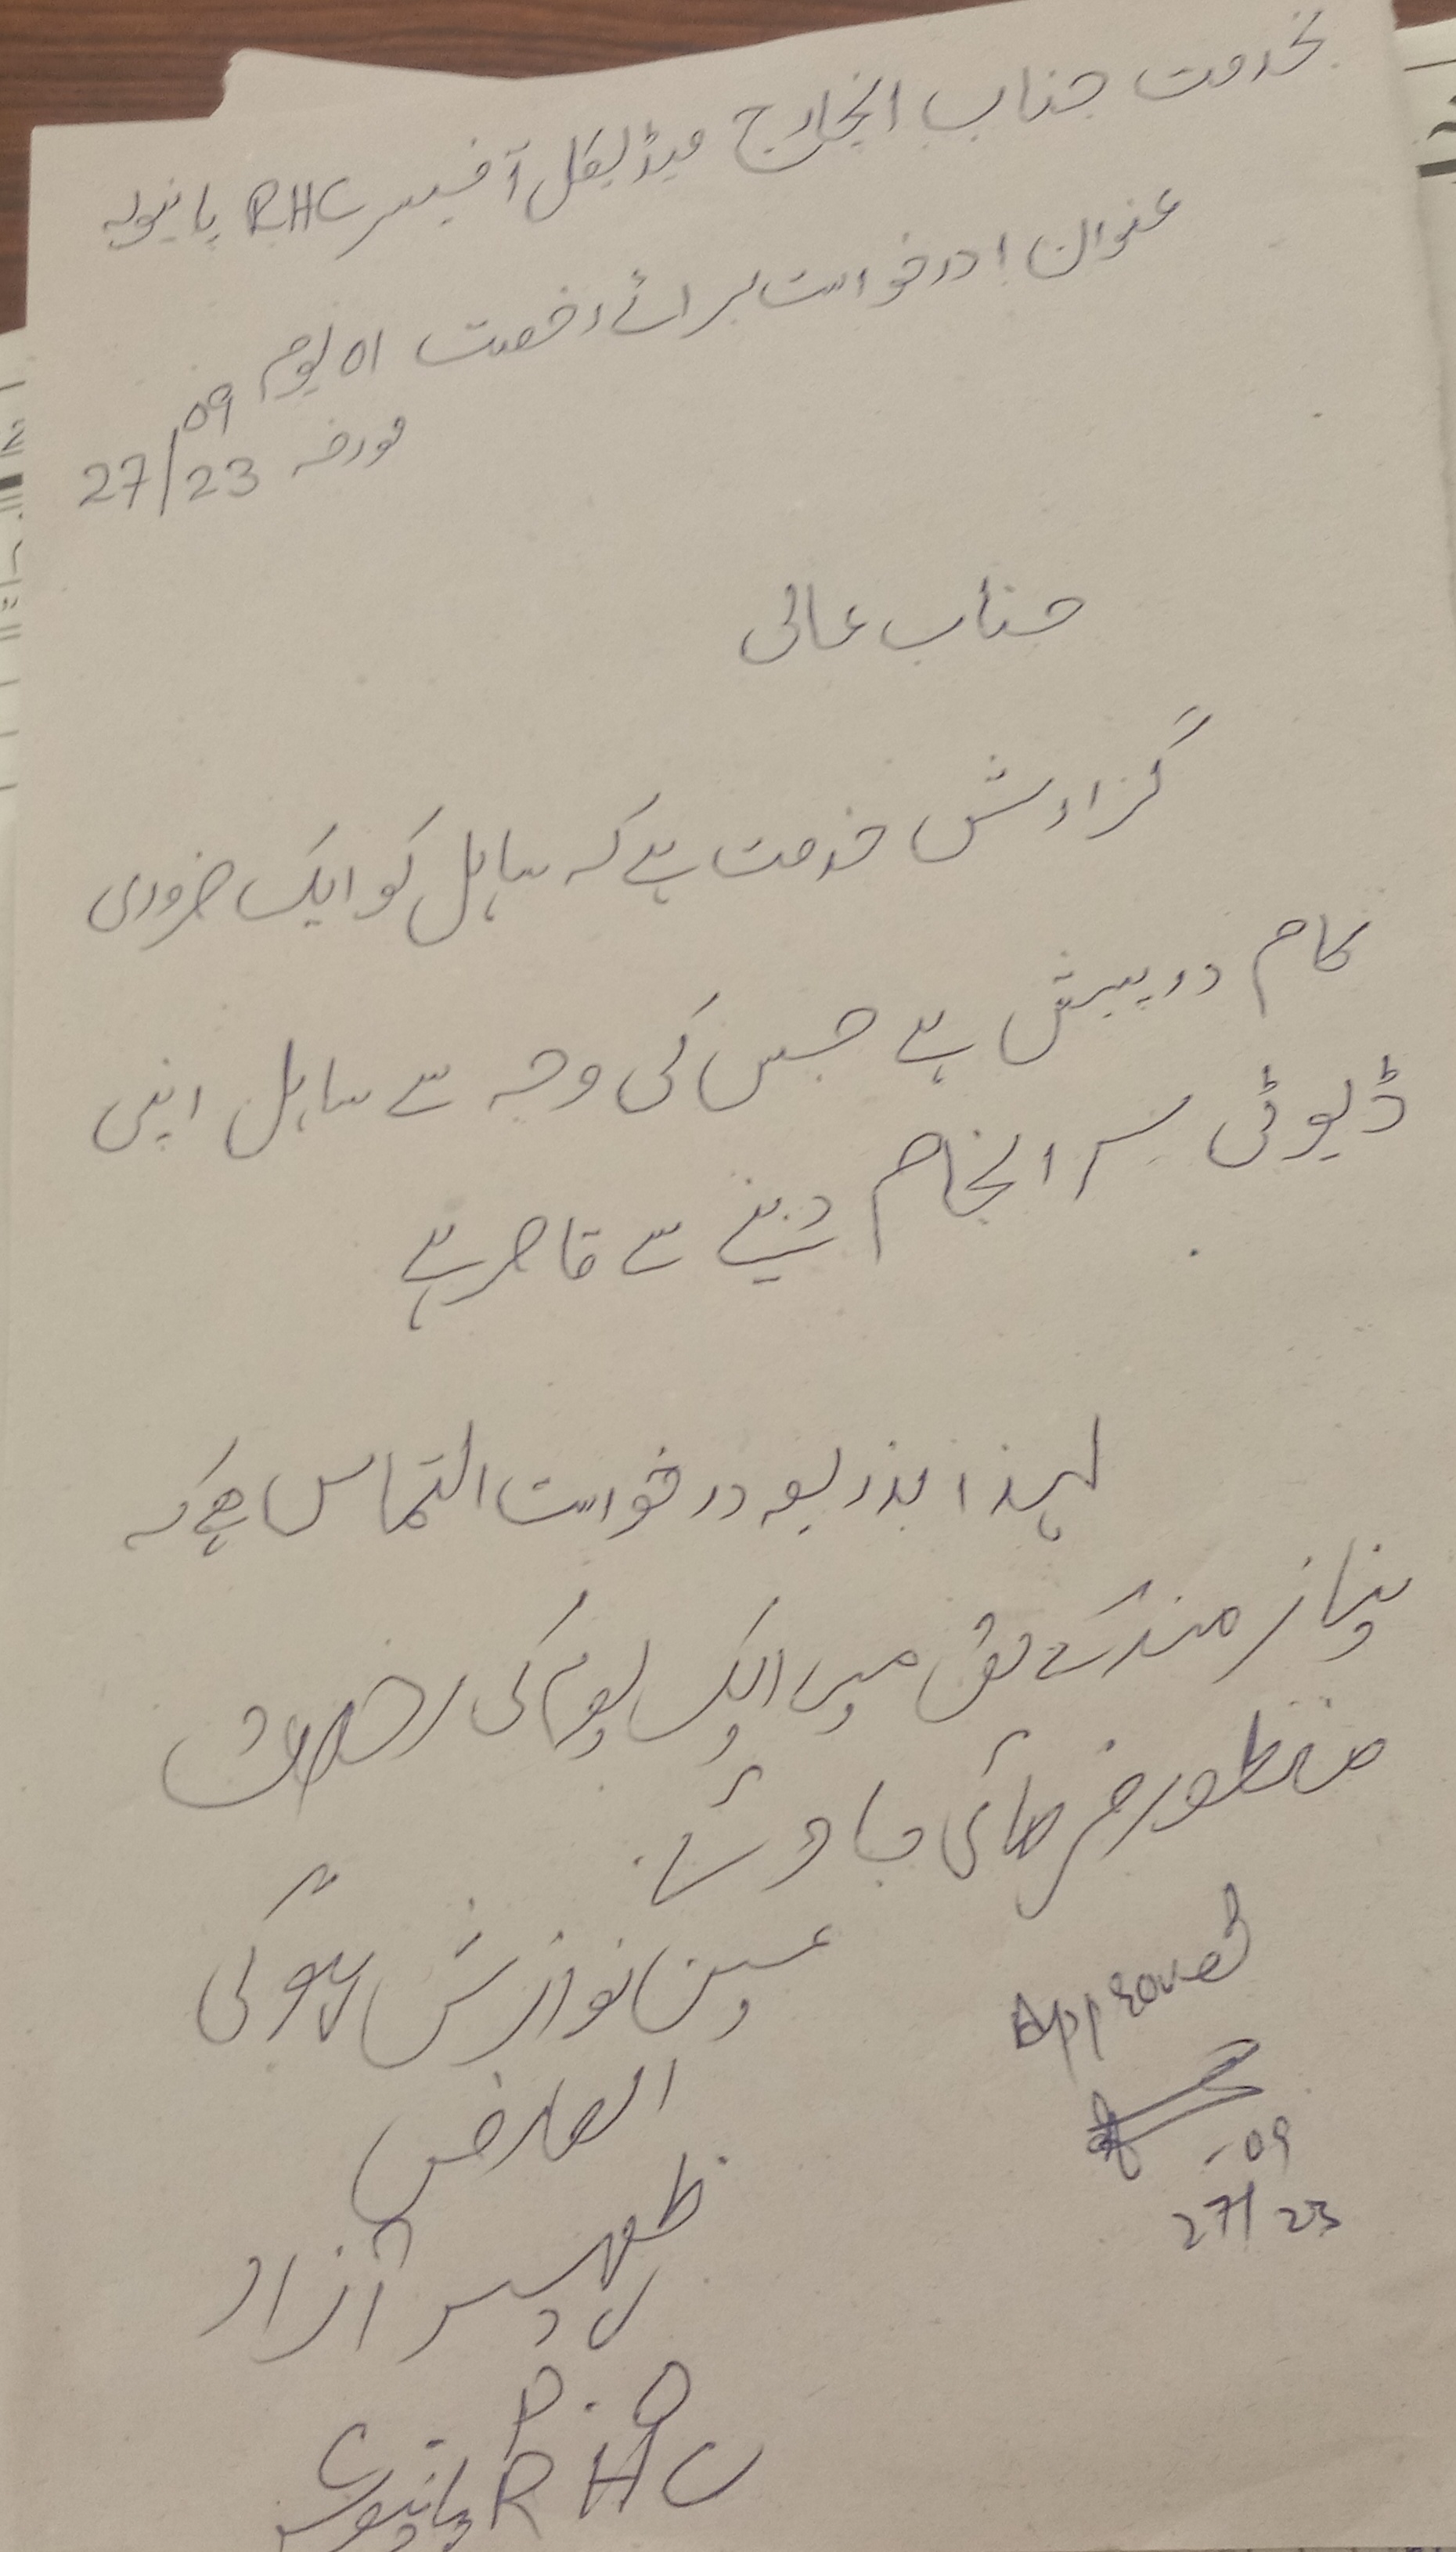 بخدمت جناب انچارج میڈیکل آفیسر RHC پانیولہ
عنوان ! درخواست برائے رخصت 01 یوم
مورخہ 27/09 23
جناب عالی
گزارش خدمت ہے کہ سائل کو ایک ضروری
کام درپیش ہے جس کی وجہ سے سائل اپنی
ڈیوٹی سرانجام دینے سے قاصر ہے
لہذا بذریعہ درخواست التماس ہے کہ
نیاز مند کے حق میں ایک یوم کی رخصت
منظور فرمائی جاوئے۔
عین نوازش ہوگی
العارض
ظہیر آزاد
RHC پانیولہ
Approved
-09
27/ 23